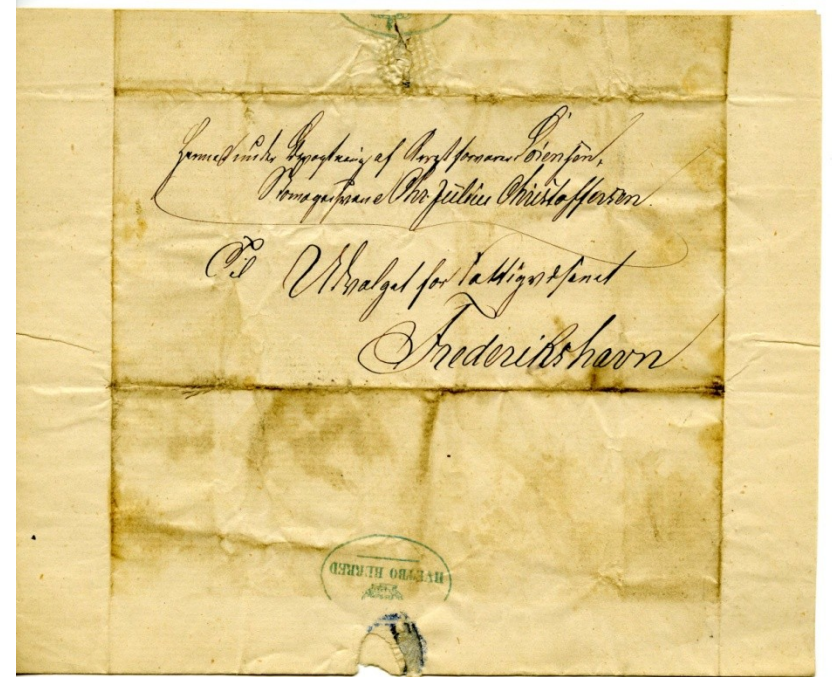 Hermed under Bevogtning af Arrestforvarer Sörensen,
Skomagersvend Chr. Julius Christoffersen.
Til
Udvalget for Fattigvæsenet
Frederikshavn
HVETBO HERRED